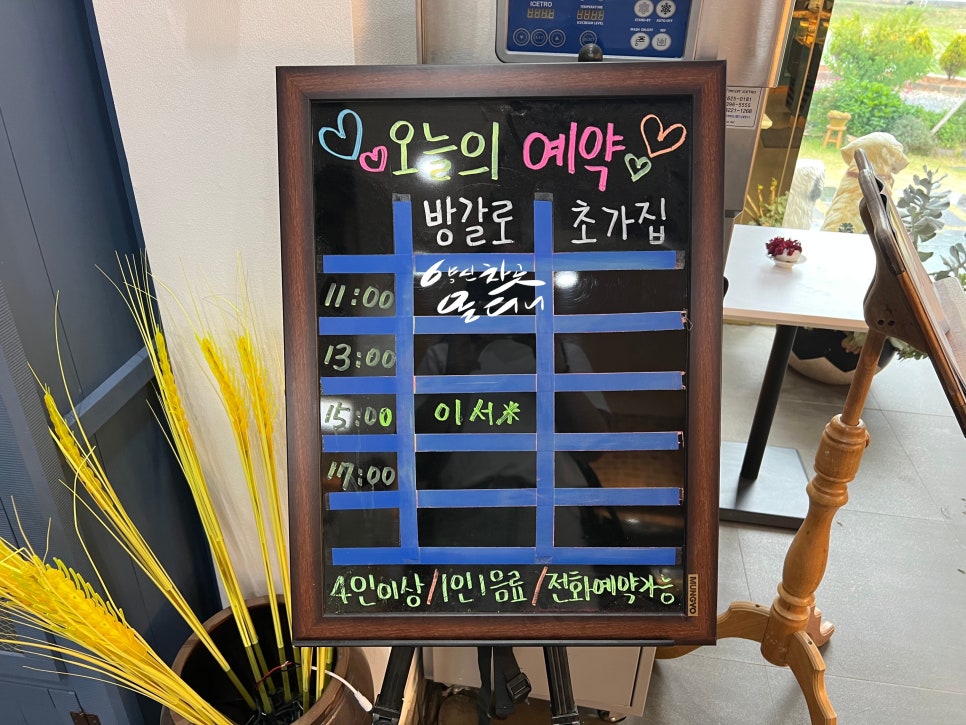 ICETRO
오늘의 예약
방갈로 초가집
11:00
13:00
15:00 이서*
17:00
4인이상/1인1음료/전화예약가능
MUNGYO